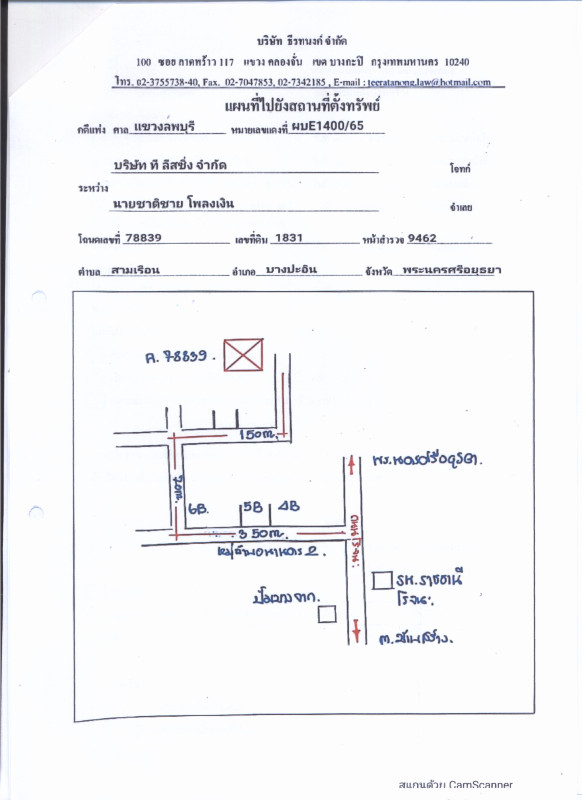 บริษัท ธีรทนงค์ จำกัด
100 ซอย ลาดพร้าว 117 แขวง คลองจั่น เขต บางกะปิ กรุงเทพมหานคร 10240
โทร. 02-3755738-40, Fax. 02-7047853, 02-7342185 , E-mail : teeratanong.law@hotmail.com
แผนที่ไปยังสถานที่ตั้งทรัพย์
คดีแห่ง ศาล แขวงลพบุรี หมายเลขแดงที่ ผบE1400/65
บริษัท ที ลิสซิ่ง จำกัด โจทก์
ระหว่าง
นายชาติชาย โพลงเงิน จำเลย
โฉนดเลขที่ 78839 เลขที่ดิน 1831 หน้าสำรวจ 9462
ตำบล สามเรือน อำเภอ บางปะอิน จังหวัด พระนครศรีอยุธยา
ค. 78839.
150m.
พระนครศรีอยุธยา.
70m.
6B. 5B 4B
350m.
ถนนโรจนะ
รพ.ราชธานี
โรจนะ.
สแกนด้วย CamScanner